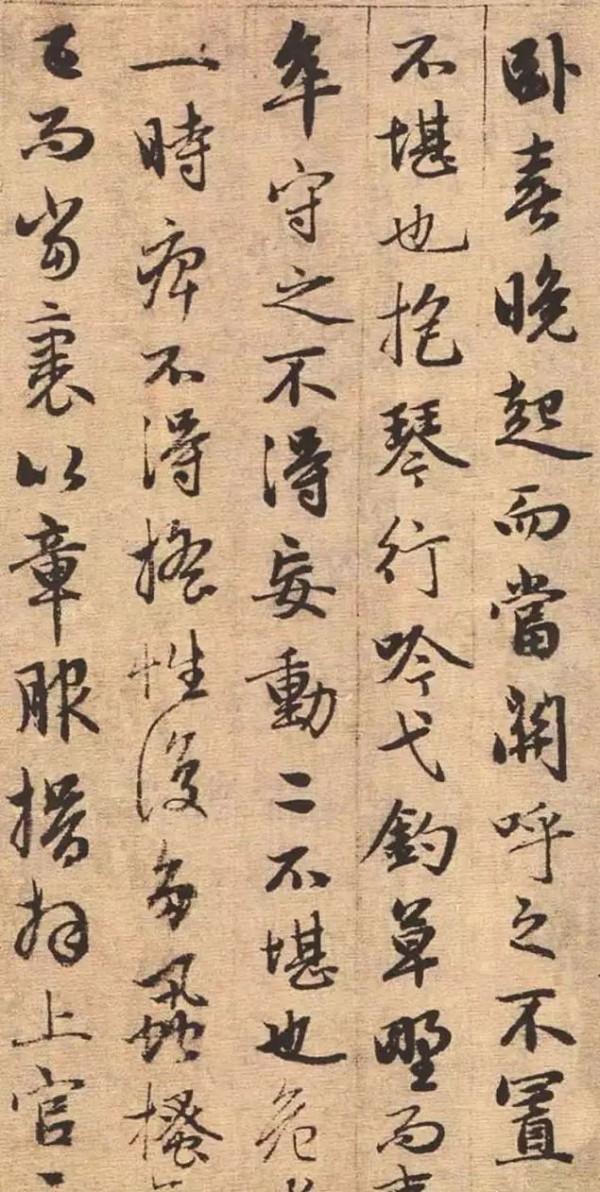 臥喜晚起而當關呼之不置
不堪也抱琴行吟弋釣草野而
卒守之不得妄動二不堪也危
一時痺不得搖性復多蝨搔
已而當裹以章服揖拜上官